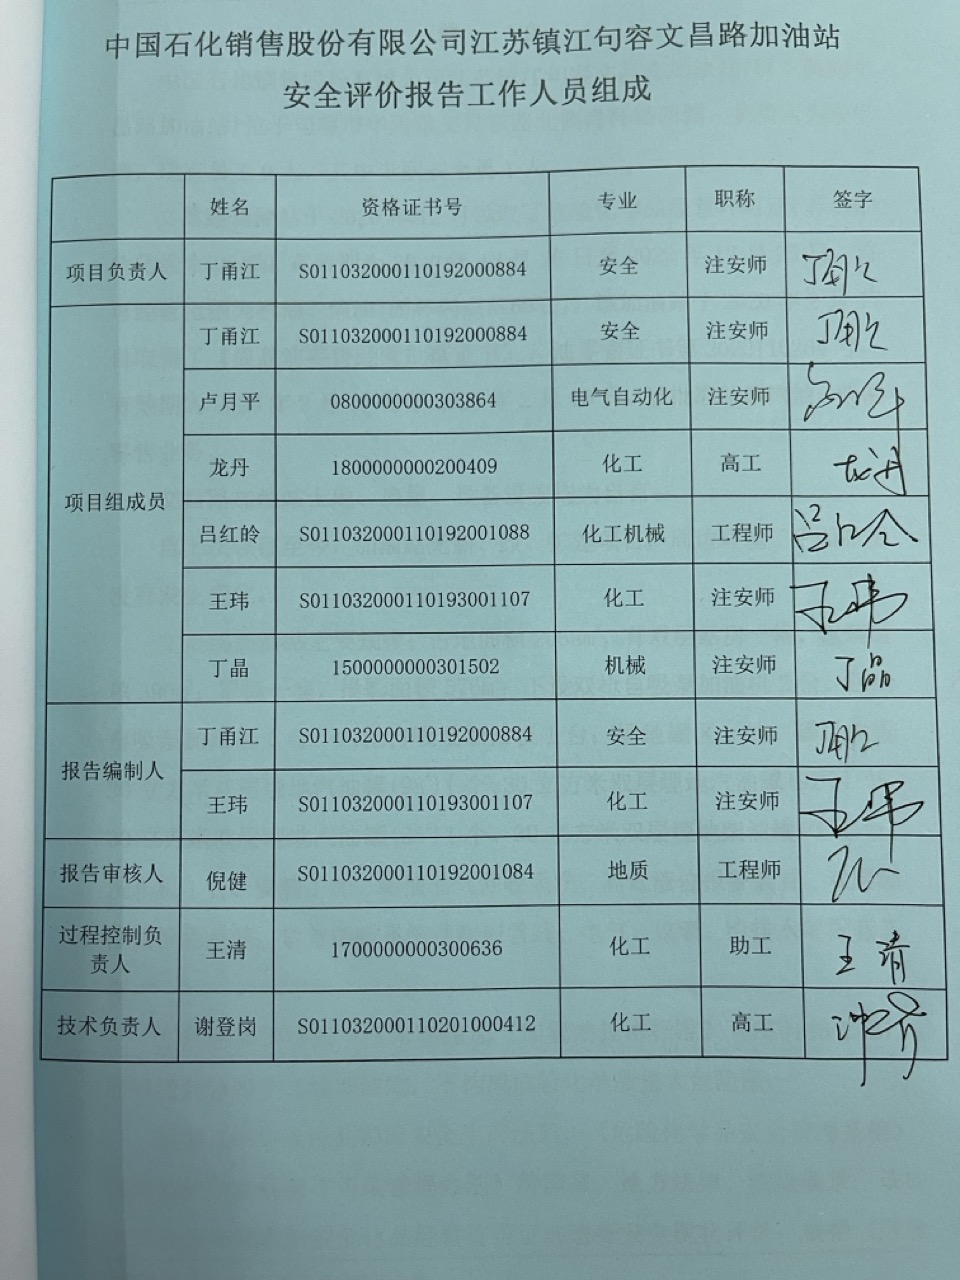 中国石化销售股份有限公司江苏镇江句容文昌路加油站
安全评价报告工作人员组成
姓名 资格证书号 专业 职称 签字
项目负责人 丁甬江 S011032000110192000884 安全 注安师
项目组成员
丁甬江 S011032000110192000884 安全 注安师
卢月平 0800000000303864 电气自动化 注安师
龙丹 1800000000200409 化工 高工 龙丹
吕红皊 S011032000110192001088 化工机械 工程师
王玮 S011032000110193001107 化工 注安师 王玮
丁晶 1500000000301502 机械 注安师 丁晶
报告编制人
丁甬江 S011032000110192000884 安全 注安师
王玮 S011032000110193001107 化工 注安师 王玮
报告审核人 倪健 S011032000110192001084 地质 工程师
过程控制负
责人
王清 1700000000300636 化工 助工 王清
技术负责人 谢登岗 S011032000110201000412 化工 高工